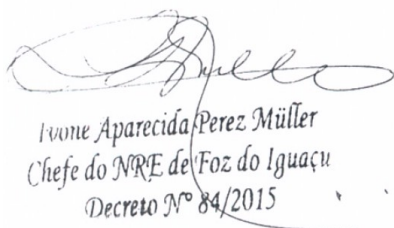 Ivone Aparecida Perez Müller
Chefe do NRE de Foz do Iguaçu
Decreto Nº 84/2015